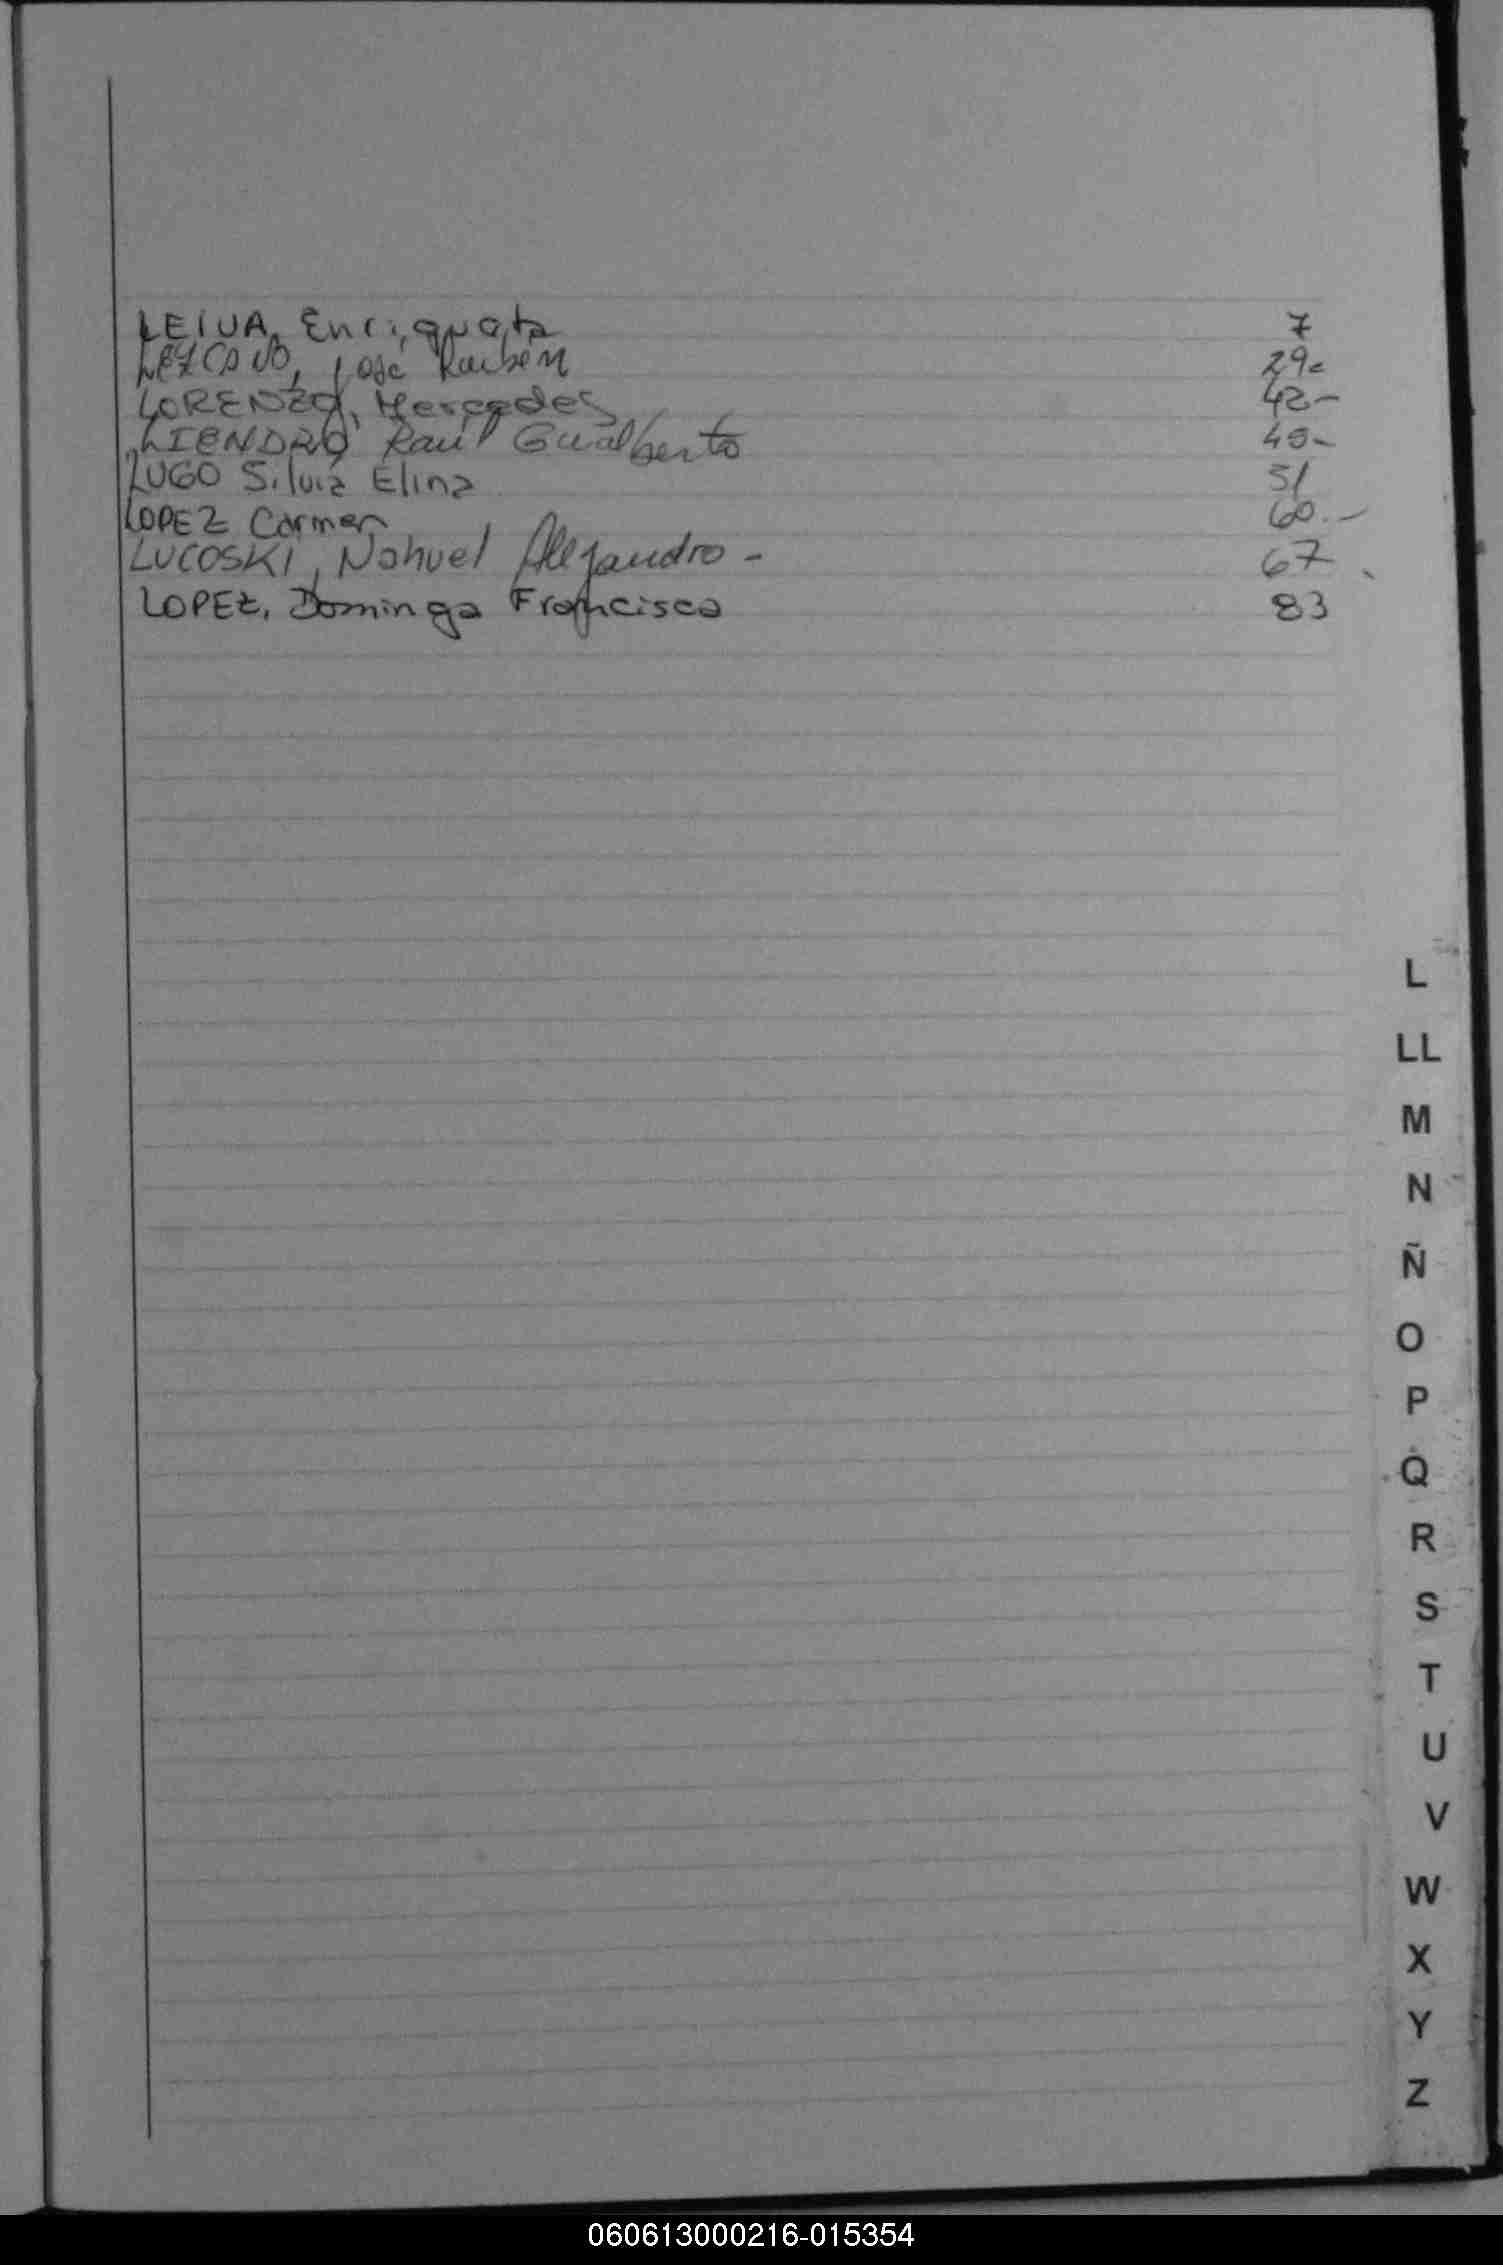 LEIVA, Enriqueta 7
LEZCANO, José Rubén 29-
LORENZO, Mercedes 42-
LIENDRO Raúl Gualberto 45-
LUGO Silvia Elina 51
LOPEZ Carmen 60.-
LUCOSKI, Nahuel Alejandro - 67
LOPEZ, Dominga Francisca 83
L
LL
M
N
Ñ
O
P
Q
R
S
T
U
V
W
X
Y
Z
060613000216-015354